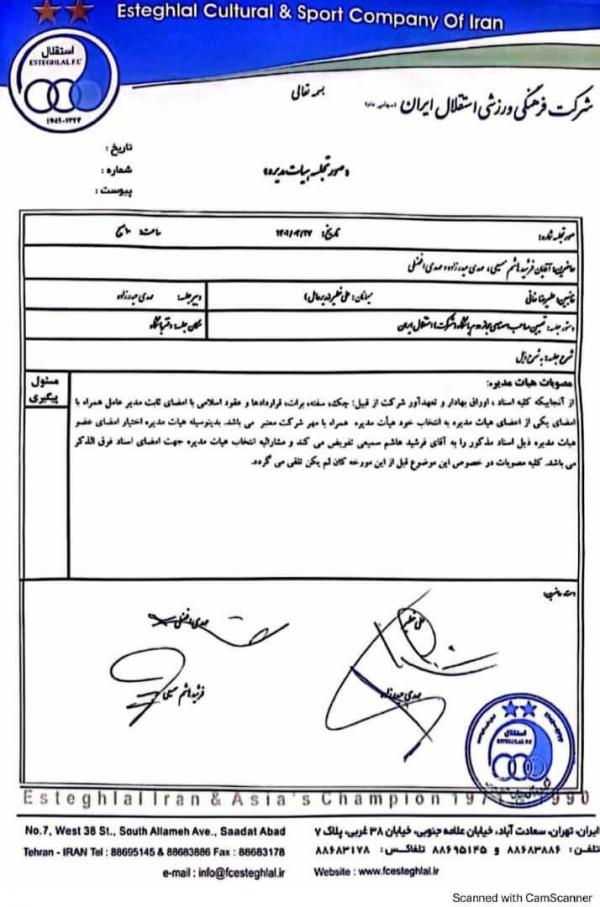 Esteghlal Cultural & Sport Company Of Iran
استقلال
ESTEGHLAL F.C
۱۹۴۵-۱۳۲۴
بسمه تعالی
شرکت فرهنگی ورزشی استقلال ایران (سهامی عام)
تاریخ :
شماره :
پیوست :
«صورتجلسه هیات مدیره»
صورتجلسه شماره: تاریخ: ساعت:
حاضرین: آقایان فرشید هاشم سمیعی، مهدی حیدرزاده و مهدی افضلی
غایبین: علیرضا خانی میهمانان: علی خطیر (مدیرعامل) دبیر جلسه: مهدی حیدرزاده
دستور جلسه: تعیین صاحب امضای مجاز دوم باشگاه (شرکت) استقلال ایران مکان جلسه: دفتر باشگاه
شرح جلسه: به شرح ذیل
مصوبات هیات مدیره:
مسئول پیگیری
از آنجاییکه کلیه اسناد ، اوراق بهادار و تعهدآور شرکت از قبیل: چک، سفته، برات، قراردادها و عقود اسلامی با امضای ثابت مدیر عامل همراه با
امضای یکی از اعضای هیات مدیره به انتخاب خود هیأت مدیره همراه با مهر شرکت معتبر می باشد. بدینوسیله هیات مدیره اختیار امضای عضو
هیات مدیره ذیل اسناد مذکور را به آقای فرشید هاشم سمیعی تفویض می کند و مشارالیه انتخاب هیات مدیره جهت امضای اسناد فوق الذکر
می باشد. کلیه مصوبات در خصوص این موضوع قبل از این مورخه کان لم یکن تلقی می گردد.
علی خطیر
مهدی افضلی
مهدی حیدرزاده
فرشید هاشم سمیعی
استقلال
ESTEGHLAL F.C
Esteghlal Iran & Asia's Champion 1971 & 1990
No.7, West 38 St., South Allameh Ave., Saadat Abad
ایران، تهران، سعادت آباد، خیابان علامه جنوبی، خیابان ۳۸ غربی، پلاک ۷
Tehran - IRAN Tel : 88695145 & 88683886 Fax : 88683178
تلفن: ۸۸۶۸۳۸۸۶ و ۸۸۶۹۵۱۴۵ تلفاکس: ۸۸۶۸۳۱۷۸
e-mail : info@fcesteghlal.ir
Website : www.fcesteghlal.ir
Scanned with CamScanner